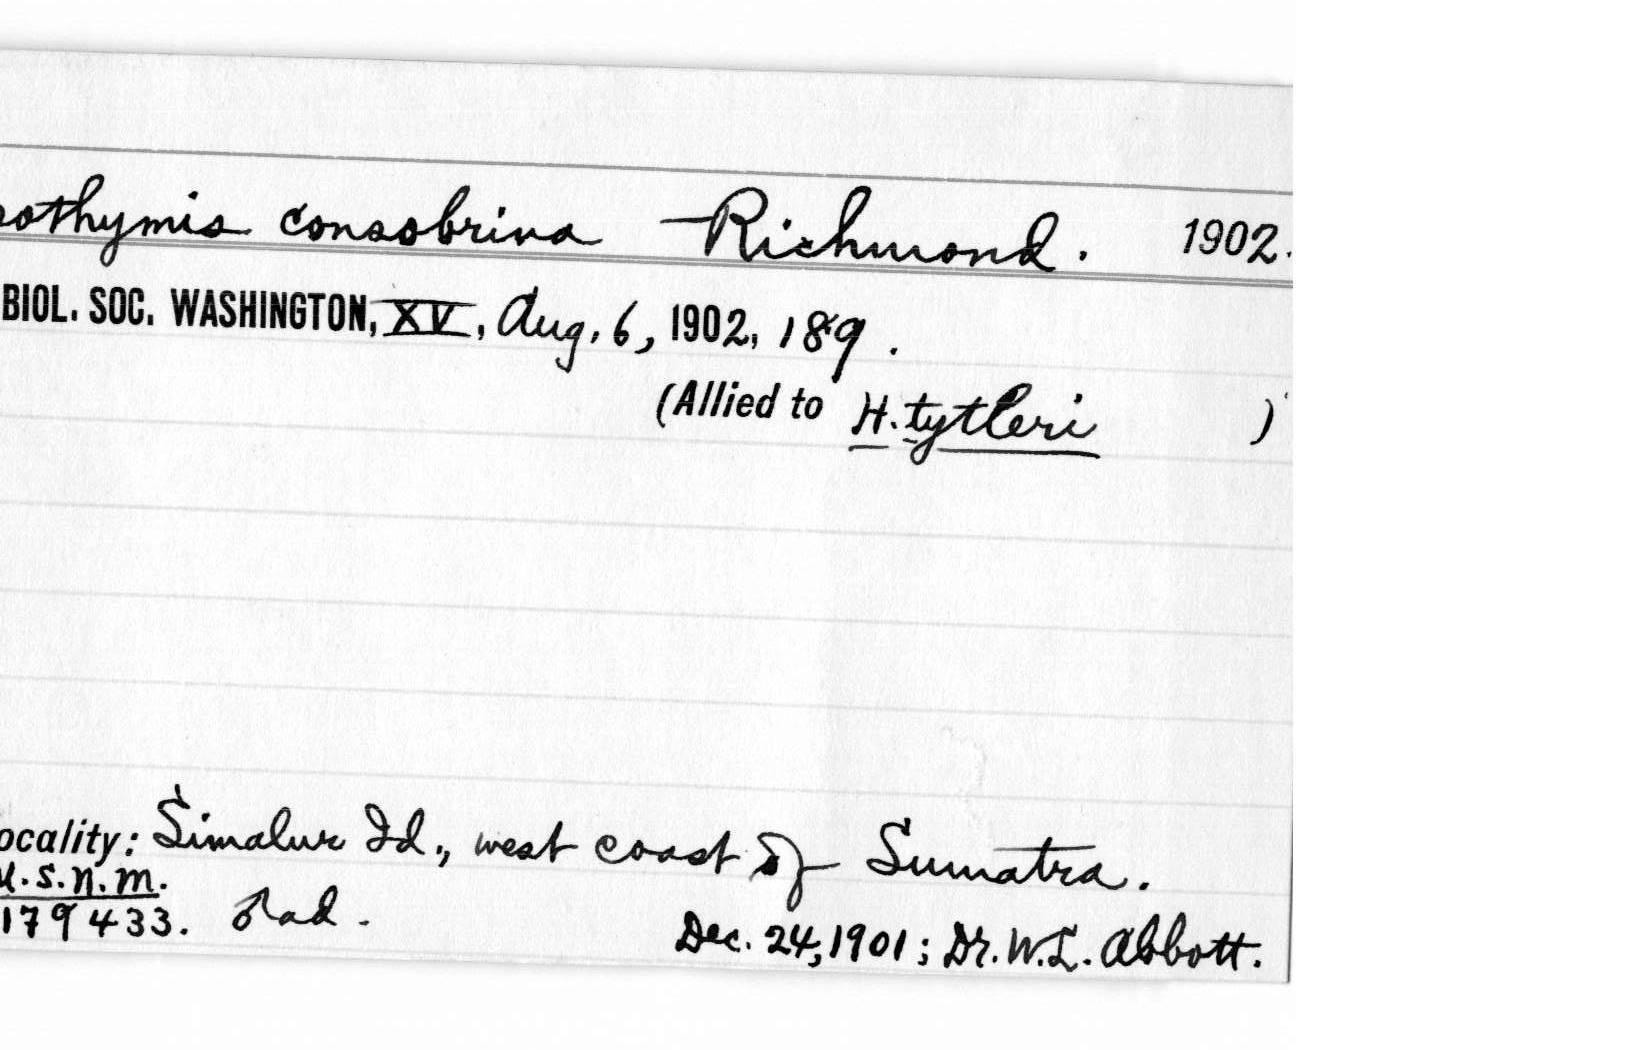 othymis consobrina Richmond. 1902.
BIOL. SOC. WASHINGTON, XV, Aug. 6, 1902, 189.
(Allied to H. tytleri )
ocality: Simalur Id., west coast of Sumatra.
U.S.N.M.
179433. ad.
Dec. 24, 1901; Dr. W.L. Abbott.